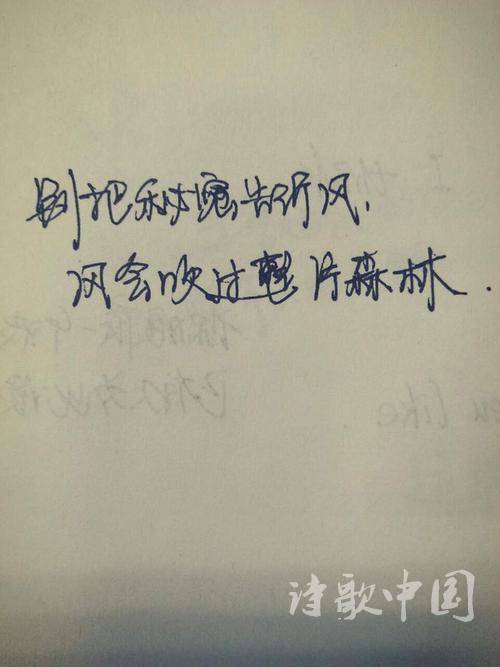 别把秘密告诉风，
风会吹过整片森林.
I
like.
诗歌中国